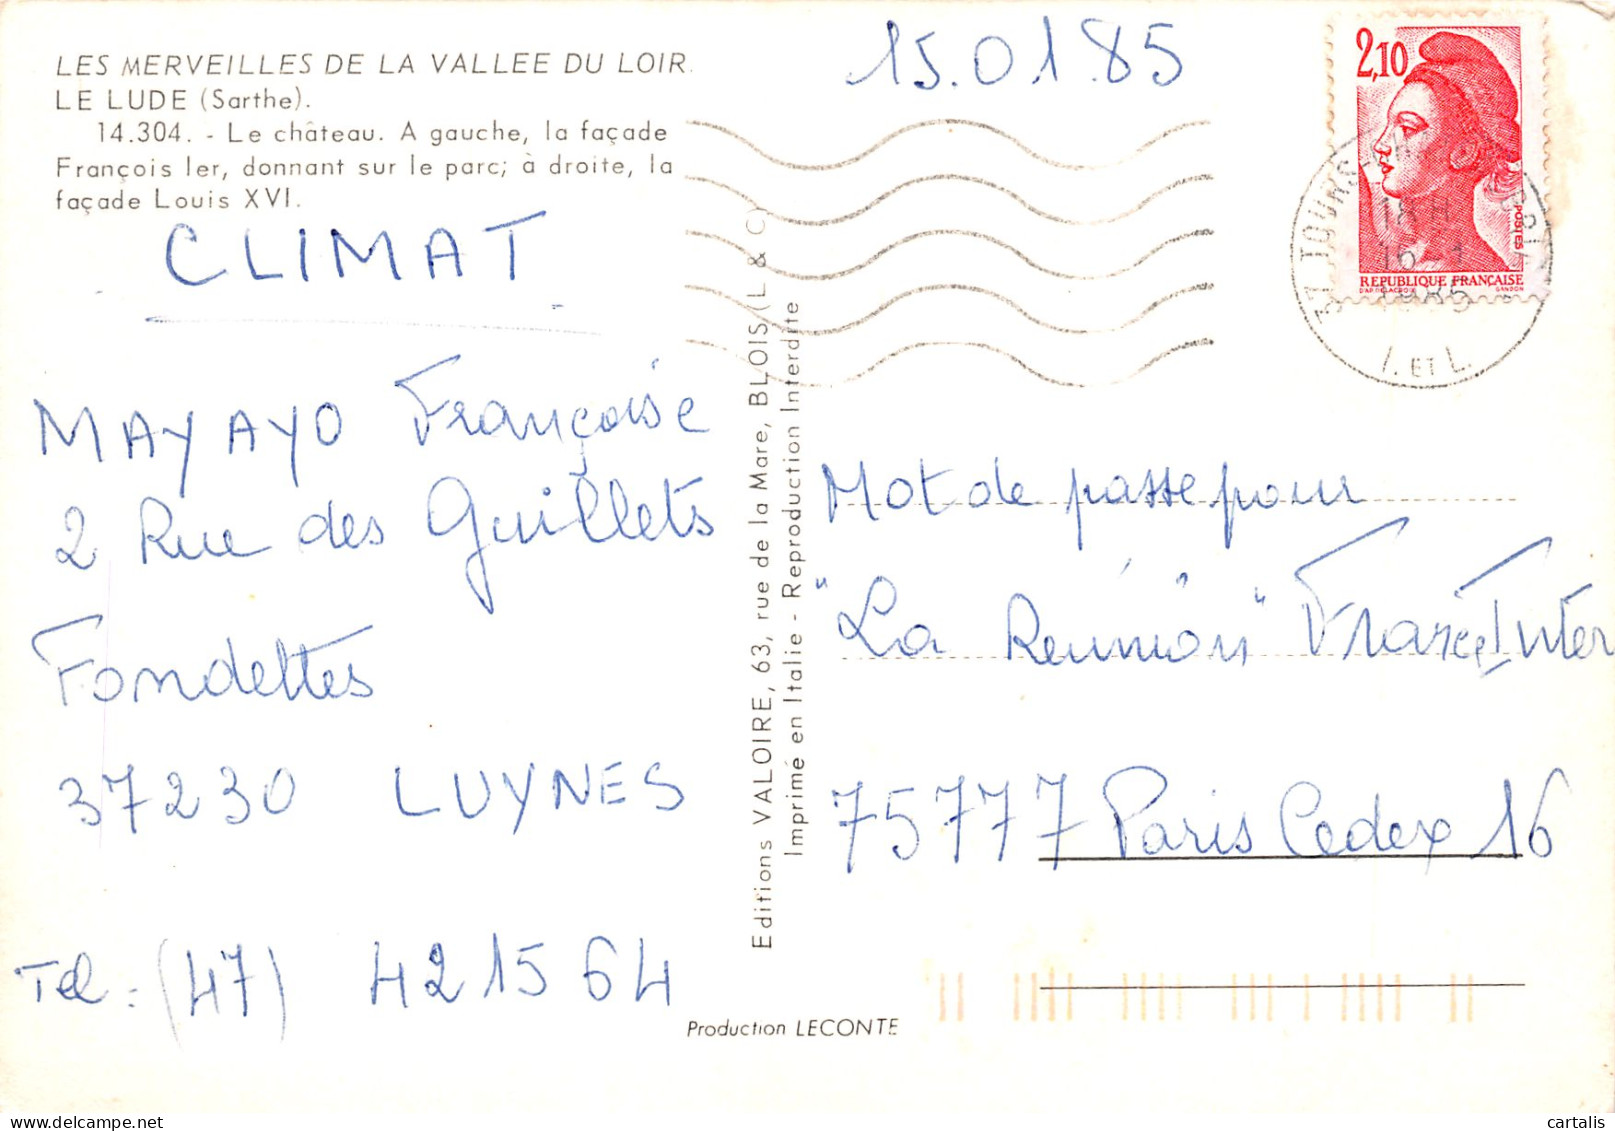 LES MERVEILLES DE LA VALLEE DU LOIR.
LE LUDE (Sarthe).
14.304. - Le château. A gauche, la façade
François Ier, donnant sur le parc; à droite, la
façade Louis XVI.
CLIMAT
MAYAYO Françoise
2 Rue des Guillets
Fondettes
37230 LUYNES
Tel : (47) 421564
Editions VALOIRE, 63, rue de la Mare, BLOIS (L & C)
Imprimé en Italie - Reproduction Interdite
Production LECONTE
15.01.85
2,10
POSTES
REPUBLIQUE FRANÇAISE
D'AP. DELACROIX GANDON
37 TOURS
18 H
16 - 1
1985
I. ET L.
Mot de passe pour
"La Réunion" France Inter
75777 Paris Cedex 16
cartalis
delcampe.net